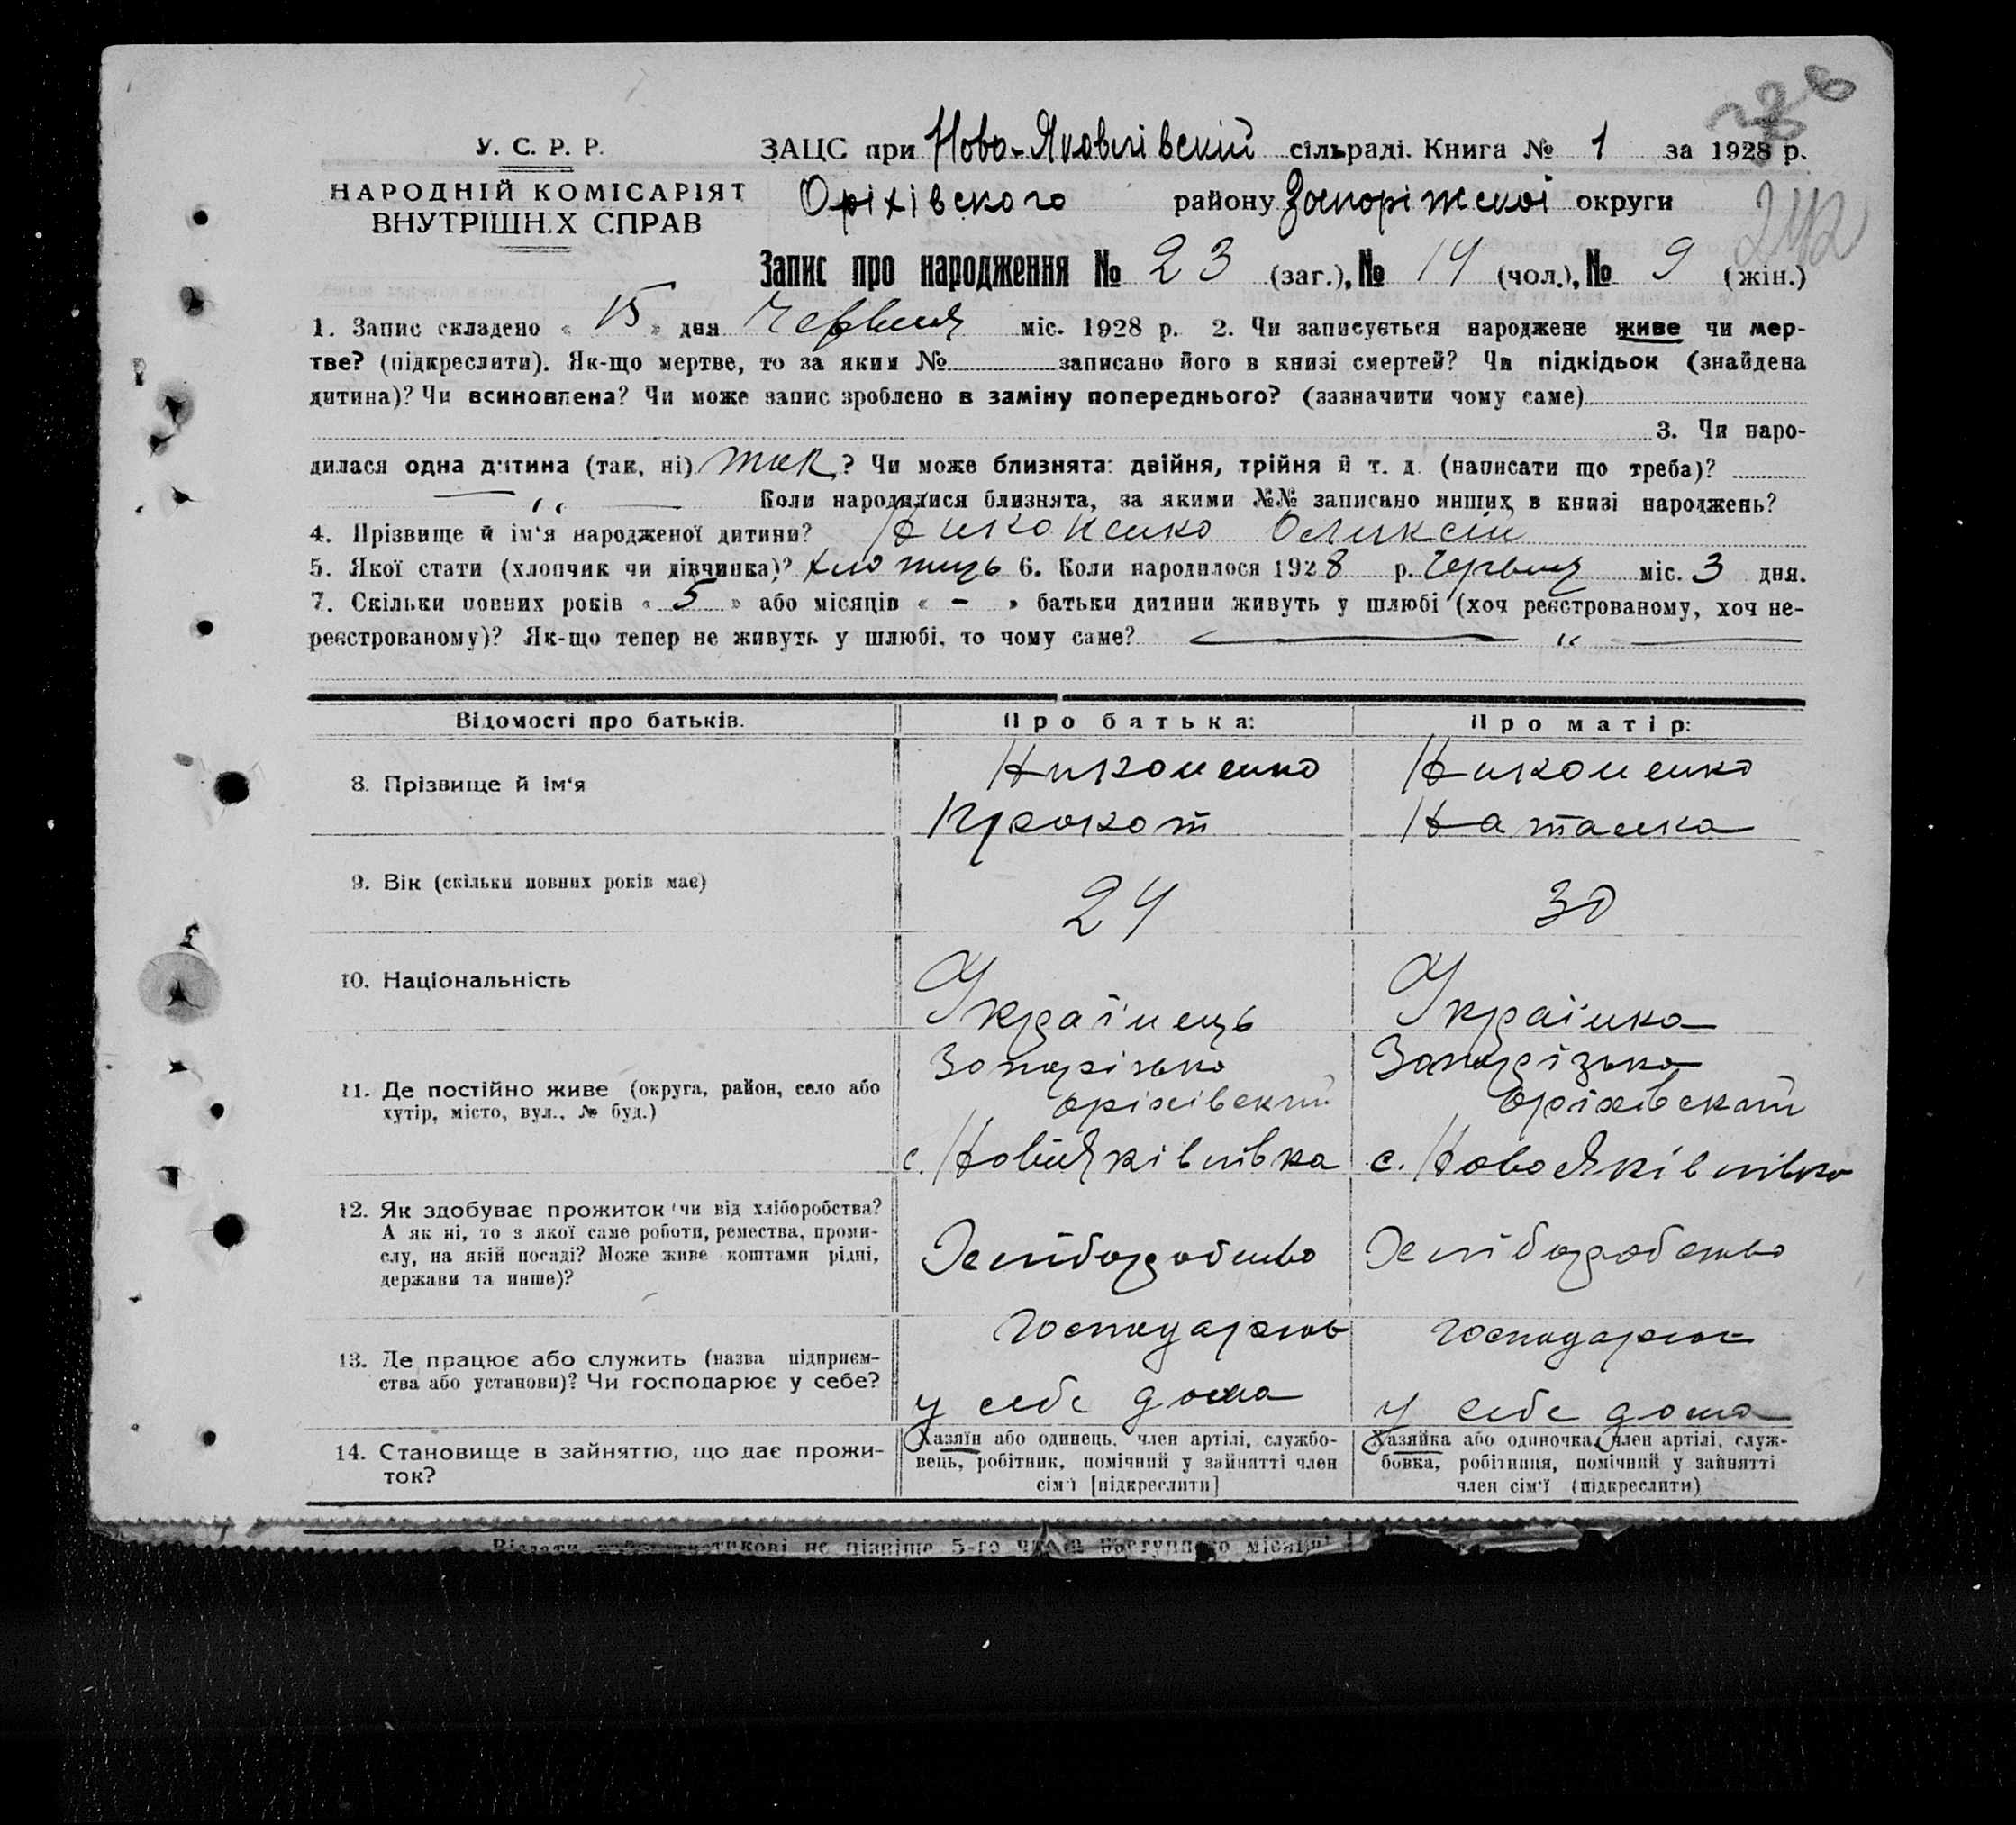 У. С. Р. Р.
НАРОДНІЙ КОМІСАРІЯТ
ВНУТРІШН.Х СПРАВ
ЗАЦС при Ново-Яковлівскій сільраді. Книга № 1 за 1928 р.
Оріхівского району Запоріжскоі округи
242
Запис про народження № 23 (заг.), № 14 (чол.), № 9 (жін.)
1. Запис складено « 15 » дня Червня міс. 1928 р. 2. Чи записується народжене живе чи мер-
тве? (підкреслити). Як-що мертве, то за яким № записано його в книзі смертей? Чи підкідьок (знайдена
дитина)? Чи всиновлена? Чи може запис зроблено в заміну попереднього? (зазначити чому саме)
3. Чи наро-
дилася одна дитина (так, ні) так ? Чи може близнята: двійня, трійня й т. д. (написати що треба)?
— „ — Коли народилися близнята, за якими №№ записано инших в книзі народжень?
4. Прізвище й ім‘я народженої дитини? Никоненко Оликсій
5. Якої стати (хлопчик чи дівчинка)? хлопиць 6. Коли народилося 1928 р. Червня міс. 3 дня.
7. Скільки повних років « 5 » або місяців « - » батьки дитини живуть у шлюбі (хоч реєстрованому, хоч не-
реєстрованому)? Як-що тепер не живуть у шлюбі, то чому саме? — „ —
Відомості про батьків. Про батька: Про матір:
8. Прізвище й ім‘я
Никоненко Никоненко
Прокоп Наталка
9. Вік (скільки повних років має) 24 30
10. Національність Українець Українка
11. Де постійно живе (округа, район, село або
хутір, місто, вул., № буд.)
Запорізька Запорізька
Оріхівский Оріхівский
с. НовоЯківлівка с. НовоЯківлівка
12. Як здобуває прожиток чи від хліборобства?
А як ні, то з якої саме роботи, ремества, проми-
слу, на якій посаді? Може живе коштами рідні,
держави та инше)?
Хліборобство Хліборобство
13. Де працює або служить (назва підприєм-
ства або установи)? Чи господарює у себе?
Господарює господарює
у себе дома у себе дома
14. Становище в зайняттю, що дає прожи-
ток?
Хазяїн або одинець, член артілі, службо-
вець, робітник, помічний у зайнятті член
сім‘ї [підкреслити]
Хазяйка або одиночка, член артілі, служ-
бовка, робітниця, помічний у зайнятті
член сім‘ї (підкреслити)
не пізніше 5-го